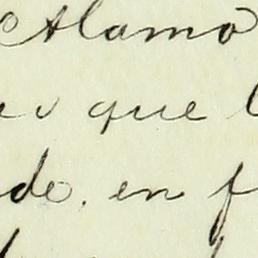 Alamo
que
de. en f